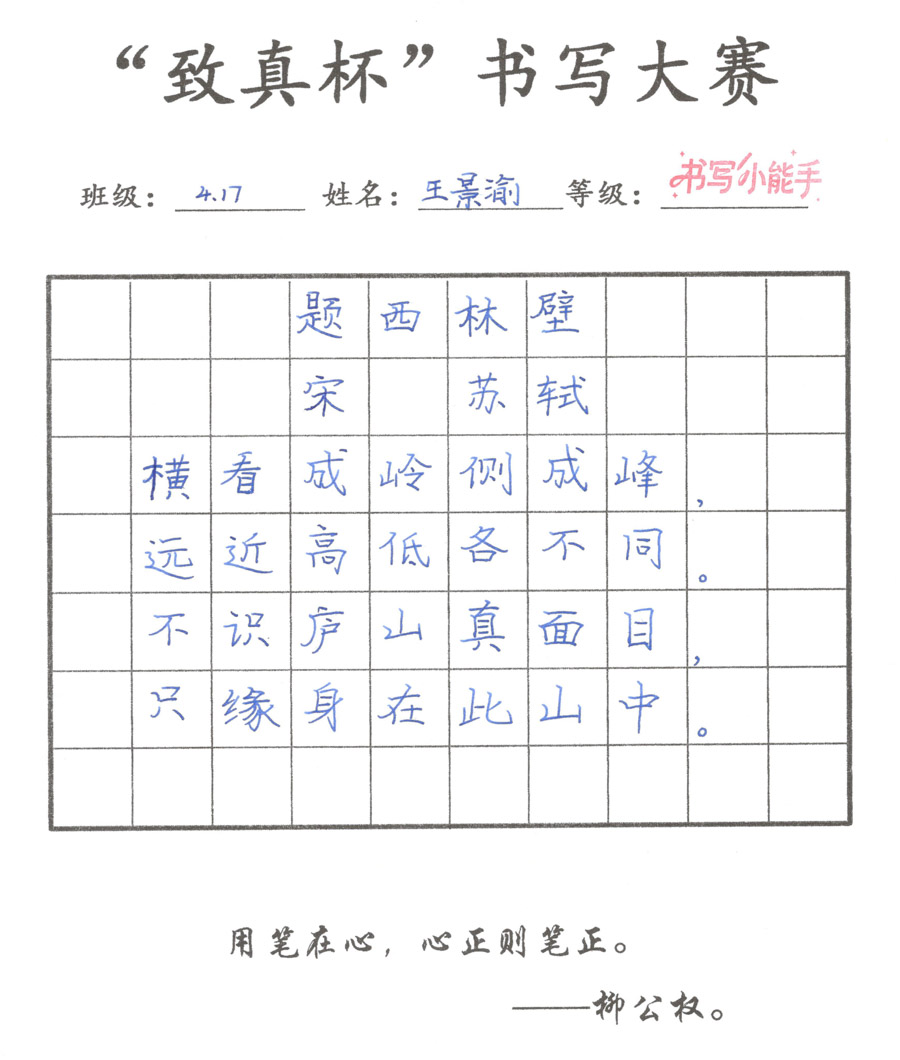 “致真杯”书写大赛
班级：4.17 姓名：王景渝 等级：书写小能手
题西林壁
宋 苏轼
横看成岭侧成峰，
远近高低各不同。
不识庐山真面目，
只缘身在此山中。
用笔在心，心正则笔正。
——柳公权。